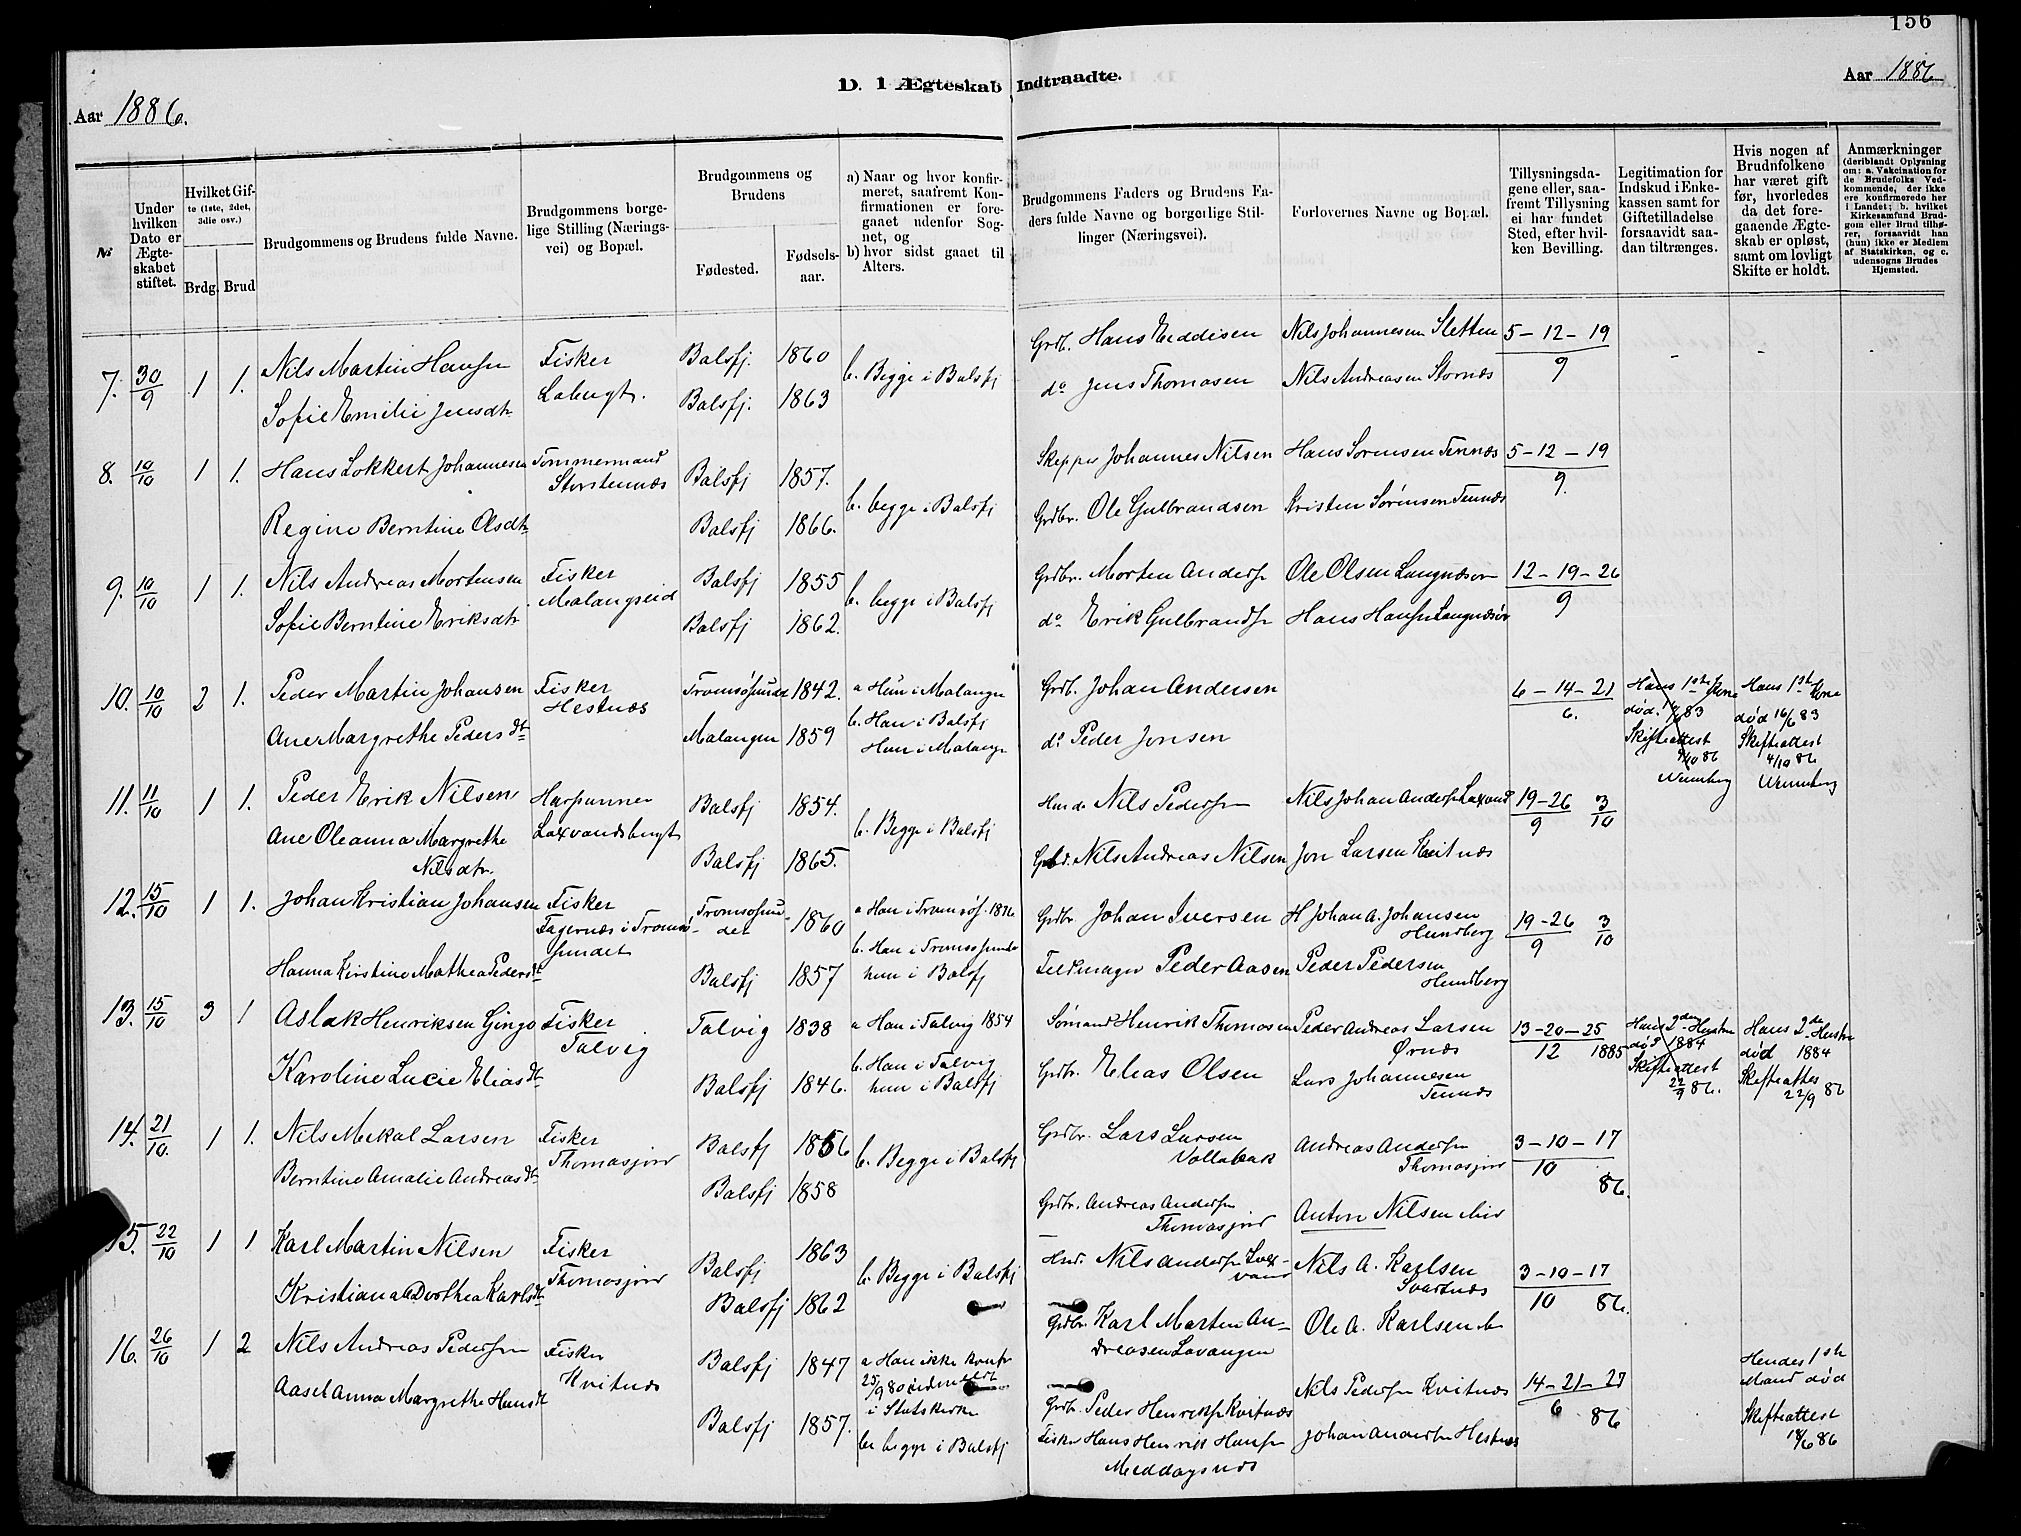 156
D. I Ægteskab Indtraadte.
Aar 1886.
Aar 1886
№
Under hvilken Dato er Ægteskabet stiftet.
Hvilket Gifte (1ste, 2det, 3die osv.)
Brdg. Brud
Brudgommens og Brudens fulde Navne.
Brudgommens borgelige Stilling (Næringsvei) og Bopæl.
Brudgommens og Brudens
Fødested.
Fødselsaar.
a) Naar og hvor konfirmeret, saafremt Konfirmationen er foregaaet udenfor Sognet, og
b) hvor sidst gaaet til Alters.
Brudgommens Faders og Brudens Faders fulde Navne og borgerlige Stillinger (Næringsvei).
Forlovernes Navne og Bopæl.
Tillysningsdagene eller, saafremt Tillysning ei har fundet Sted, efter hvilken Bevilling.
Legitimation for Indskud i Enkekassen samt for Giftetilladelse forsaavidt saadan tiltrænges.
Hvis nogen af Brudnfolkene har været gift før, hvorledes da det foregaaende Ægteskab er opløst, samt om lovligt Skifte er holdt.
Anmærkninger
(deriblandt Oplysning om: a. Vakcination for de Brudefolks Vedkommende, der ikke ere konfirmerede her i Landet; b. hvilket Kirkesamfund Brudgom eller Brud tilhører, forsaavidt han (hun) ikke er Medlem af Statskirken, og c. udensogns Brudes Hjemsted.
7. 30/9 1 1. Nils Martin Hansen Fisker Balsfj. 1860 b. Begge i Balsfj Grdb. Hans Heddisen Nils Johannesen Sletten 5-12-19/9 - - -
Sofie Emilie Jensdtr Balsfj. 1863 do Jens Thomasen Nils Andreasen Stornæs
8. 10/10 1 1. Hans Lokkert Johannesen Tømmermand Storstennæs Balsfj 1857. b. begge i Balsfj Skipper Johannes Nilsen Hans Sørensen Tennæs 5-12-19/9.
Regine Berntine Olsdtr Balsfj 1866. Grdbr. Ole Gulbrandsen Kristen Sørensen Tennæs
9. 10/10 1 1. Nils Andreas Mortensen Fisker Malangseid Balsfj 1855 b. begge i Balsfj Grdbr. Morten Andersen Ole Olsen 12-19-26/9
Sofie Berntine Eriksdtr Balsfj 1862. do Erik Gulbrands Hans Hansen
10. 10/10 2 1. Peder Martin Johansen Fisker Hestnæs Tromsøsundet 1842. a Hun i Malangen Grdb. Johan Andersen 6-14-21/6. Hans 1ste Kone død 16/6 83 Skifteattest 4/10 86 Hans 1ste Kone død 16/6 83 Skifteattest 4/10 86
Ane Margrethe Pedersdt Malangen 1859 b. Han i Balsfj Hun i Malangn do Peder Jonsen
11. 11/10 1 1. Peder Erik Nilsen Harpunner Laxvandsbugt Balsfj 1854. b. Begge i Balsfj Nils Pedersen Nils Johan Anders Laxvand 19-26/9 3/10
Ane Oleanna Margrethe Nilsdtr. Balsfj 1865. Nils Andreas Nilsen Jon Larsen Kvitnæs
12. 15/10 1 1. Johan Kristian Johansen Fisker Fagernæs i Tromsøsundet Tromsøsundet 1860 a Han i Tromsøs. 1876 Grdbr. Johan Iversen H Johan A. Johansen Hundberg 19-26/9 3/10
Hanna Kirstine Mathea Pedersdt Balsfj 1857 b. Han i Tromsøsundet hun i Balsfj Feldmager Peder Aasen Peder Pedersen Hundberg
13. 15/10 3 1 Aslak Henriksen Gingo Fisker Talvig Talvig 1838 a Han i Talvig 1854 Sømand Henrik Thomasen Peder Andreas Larsen Ørnæs 13-20-25/12 1885 Hans 2den Hustru død 1884 Skifteattest 22/9 86. Hans 2de Hustru død 1884 Skifteattes 22/9 86
Karoline Lucie Eliasdt Balsfj 1846. b. Han i Talvig hun i Balsfj Grdbr. Elias Olsen Lars Johannesen Tennæs
14. 21/10. 1 1. Nils Mekal Larsen Fisker Thomasjord Balsfj 1856 b. Begge i Balsfj Grdbr. Lars Larsen Vollabak Andreas Andersen Thomasjord 3-10-17/10 86.
Berntine Amalie Andreasdt Balsfj 1858 Grdbr. Andreas Andersen Thomasjord Anton Nilsen
15. 22/10 1 1 Karl Martin Nilsen Fisker Thomasjord Balsfj 1863 b. Begge i Balsfj Nils Andersen Laxvand Nils A. Karlsen Svartnæs 3-10-17/10 86.
Kristiana Dorthea Karlsdt Balsfj 1862 Grdbr. Karl Martin Andreasen Lavangen Ole A. Karlsen
16. 26/10 1 2 Nils Andreas Pedersen Fisker Kvitnæs Balsfj 1847 a Han ikke konfr 25/9 80 i Statskirke Grdbr. Peder Henriks Kvitnæs Nils Peders Kvitnæs 14-21-27/6 86 Hendes 1ste Mand død Skifteattest 18/6 86
Aasel Anna Margrethe Hansdt Balsfj 1857. b. begge i Balsfj Fisker Hans Henrik Hansen Middagsnæs Johan Anders Hestnæs